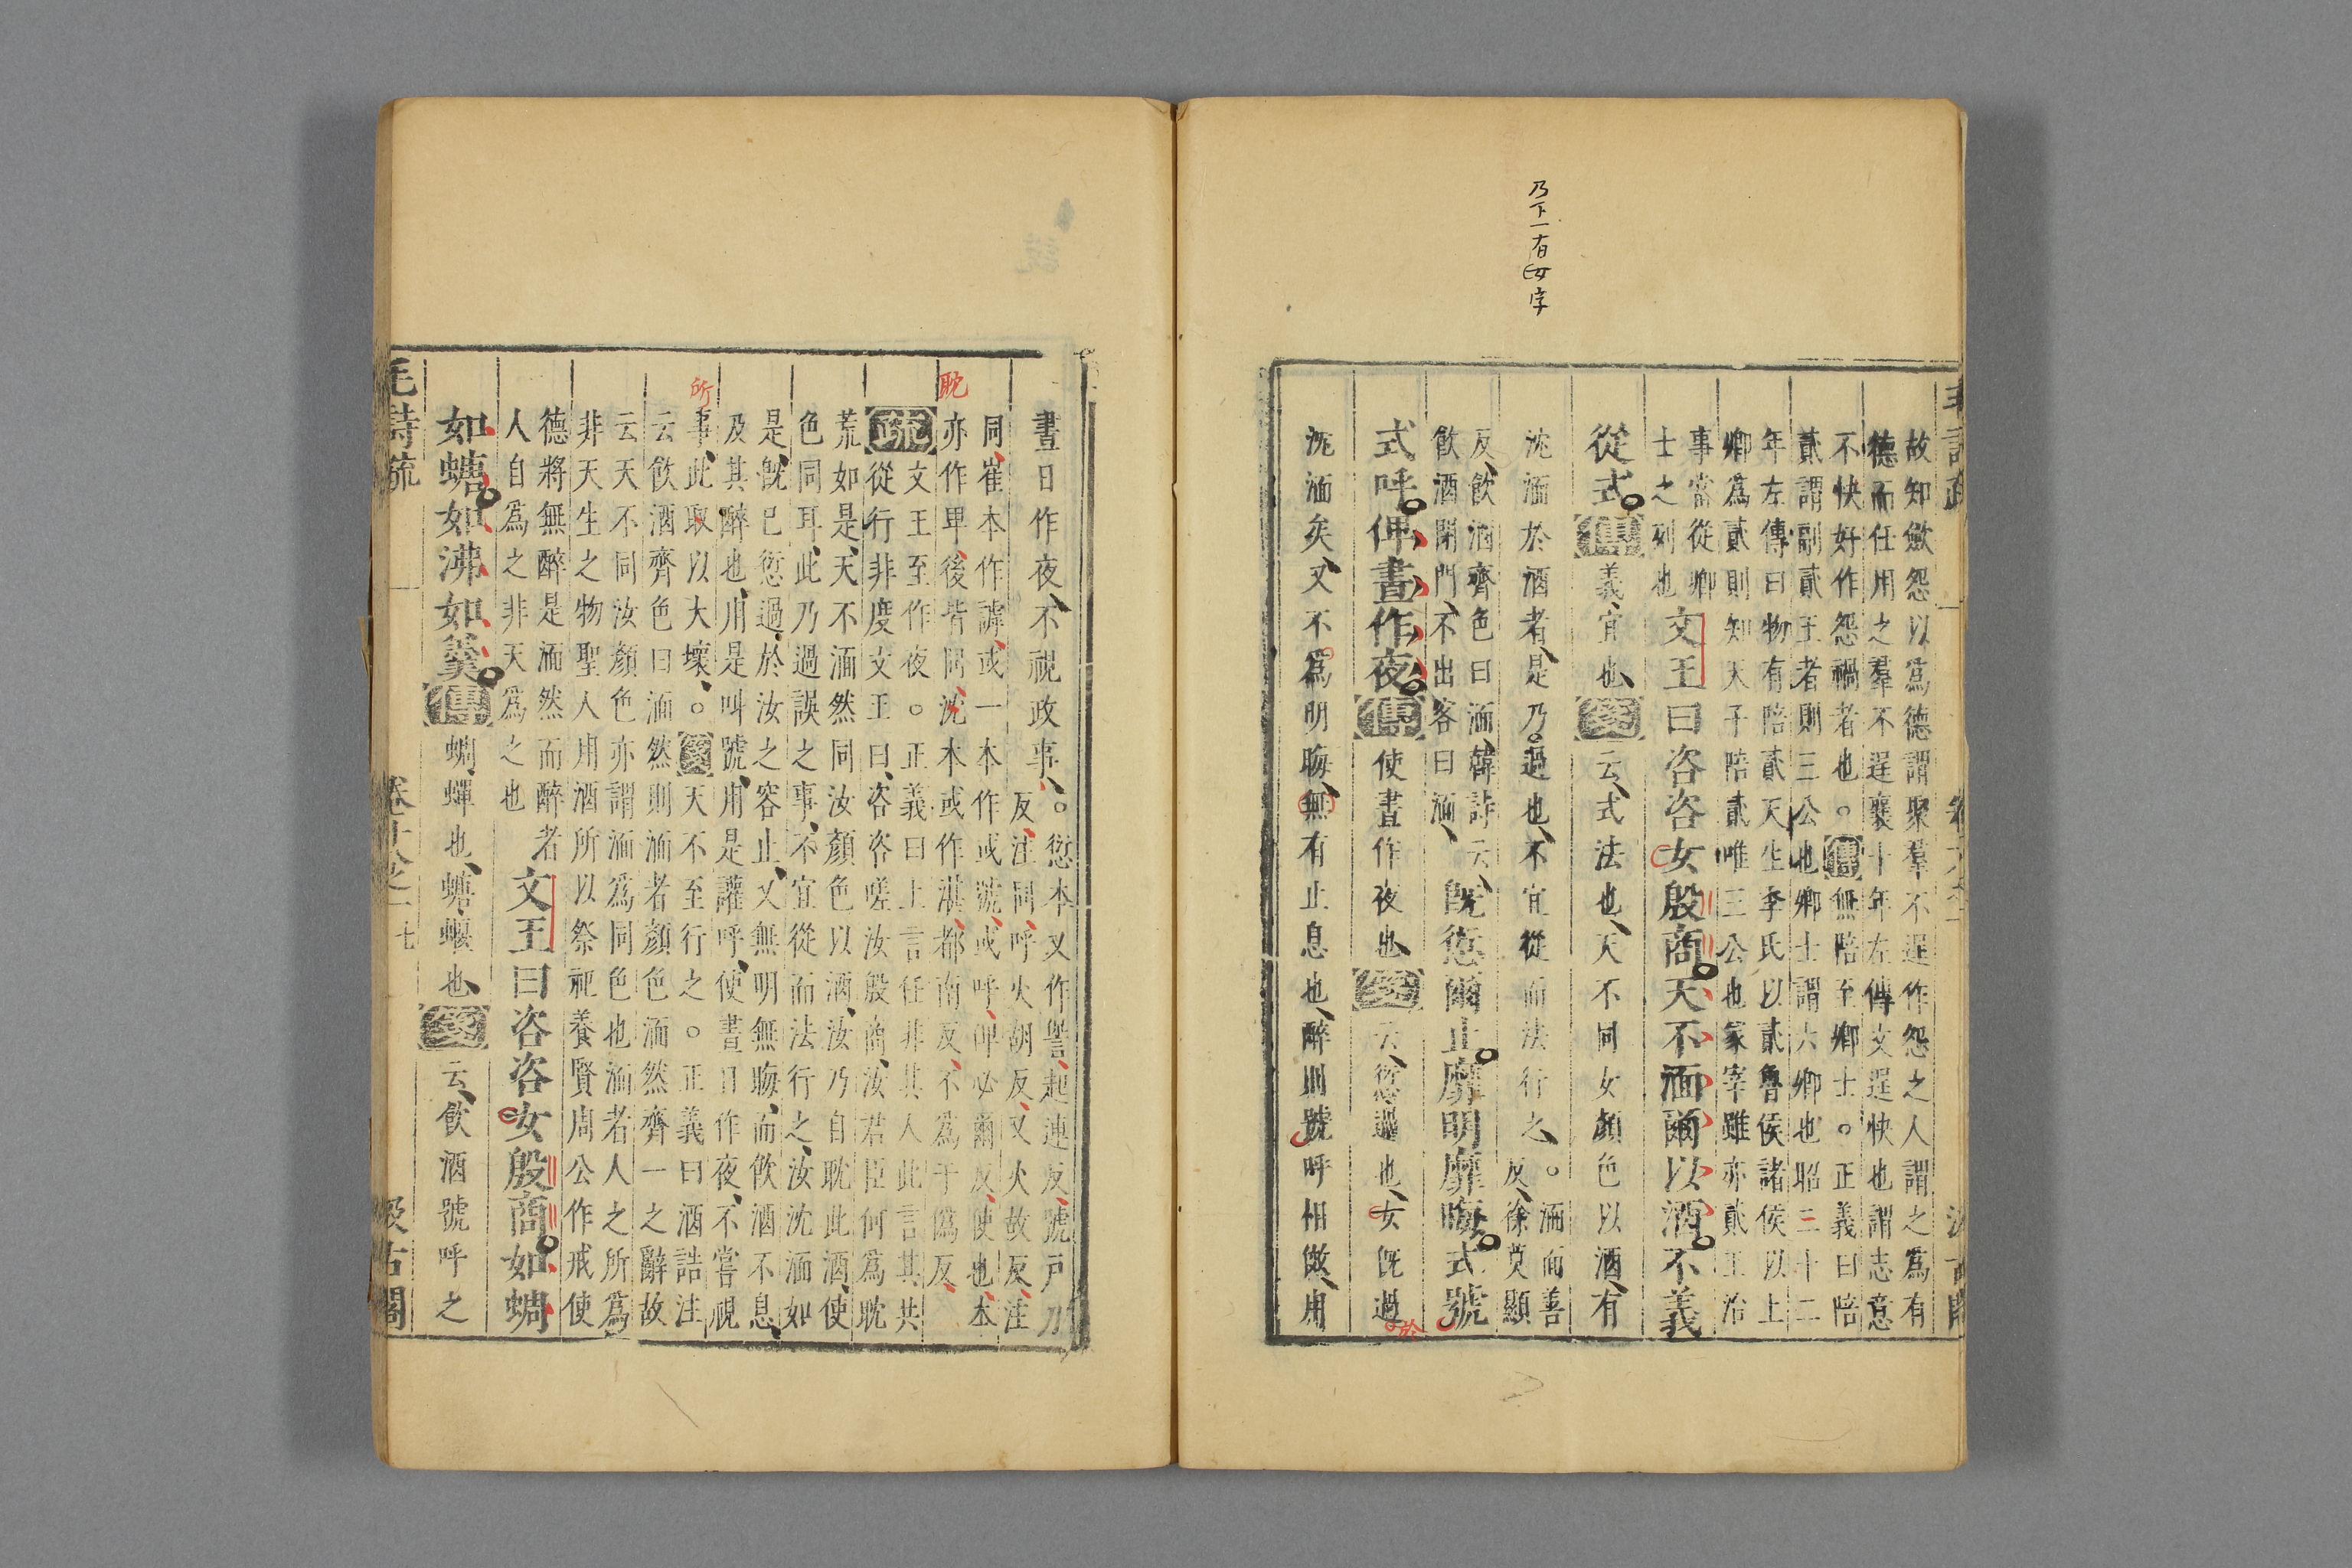 乃下一有女字
故知斂怨以爲德謂聚羣不逞作怨之人謂之爲有
德而任用之羣不逞襄十年左傳文逞快也謂志意
不快好作怨禍者也。傳無陪至卿士。正義曰陪
貳謂副貳王者則三公也卿士謂六卿也昭三十二
年左傳曰物有陪貳天生季氏以貳魯侯諸侯以上
卿爲貳則知天子陪貳唯三公也冢宰雖亦貳王治
事當從卿
士之列也
文王曰咨咨女殷商天不湎爾以酒不義
從式傳義宜也箋云式法也天不同女顏色以酒有
沈湎於酒者是乃過也不宜從而法行之。
湎面善
反徐莫顯
反飲酒齊色曰湎韓詩云
飲酒閉門不出客曰湎
旣愆爾止靡明靡晦式號
式呼俾晝作夜傳使晝作夜也箋云愆過也女旣過
於
沈湎矣又不爲明晦無有止息也醉則號呼相傚用
晝日作夜不視政事。
愆本又作諐起連反號戶刀
反注同呼火胡反又火故反注
同崔本作謼或一本作或號或呼俾必爾反使也本
耽
亦作卑後皆同沈本或作湛都南反不爲于僞反
疏
文王至作夜。正義曰上言任非其人此言其共
從行非度文王曰咨咨嗟汝殷商汝君臣何爲耽
荒如是天不湎然同汝顏色以酒汝乃自耽此酒使
色同耳此乃過誤之事不宜從而法行之汝沈湎如
是旣已愆過於汝之容止又無明無晦而飲酒不息
及其醉也用是叫號用是讙呼使晝日作夜不嘗視
所
事此取以大壞。箋天不至行之。正義曰酒誥注
云飲酒齊色曰湎然則湎者顏色湎然齊一之辭故
云天不同汝顏色亦謂湎爲同色也湎者人之所爲
非天生之物聖人用酒所以祭祀養賢周公作戒使
德將無醉是湎然而醉者
人自爲之非天爲之也
文王曰咨咨女殷商如蜩
如螗如沸如羹傳蜩蟬也螗蝘也箋云飲酒號呼之
毛詩疏 卷十八之一 七 汲古閣